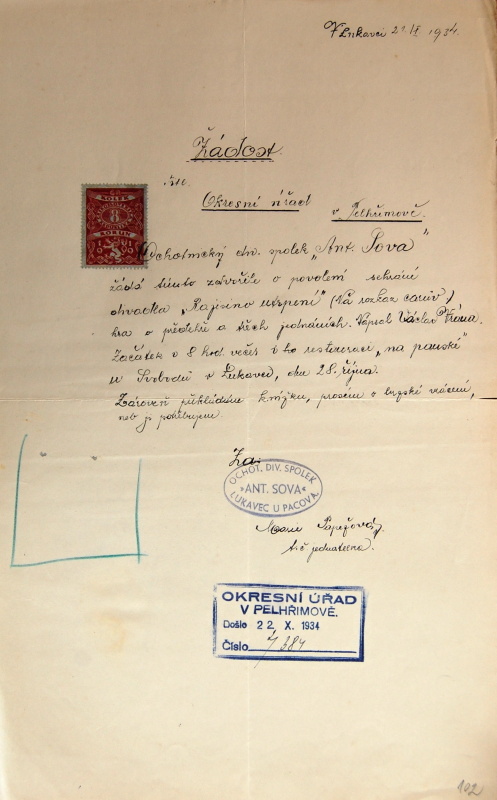 V Lukavci 21. IX 1934.
Žádost.
Okresní úřad
v Pelhřimově.
KOLEK
8
KORUN
Ochotnický div. spolek „Ant. Sova"
žádá tímto zdvořile o povolení sehrání
divadla (Na rozkaz carův)
hra o předehře a třech jednáních. Napsal Václav Vrana.
Začátek v 8 hod. večer v restauraci „na panské"
u Svobodů v Lukavci, dne 28. října.
Zároveň přikládám knížku, prosím o brzské vrácení,
neb ji potřebujem.
Za:
OCHOT. DIV. SPOLEK
»ANT. SOVA«
LUKAVEC U PACOVA.
Marie
t.č. jednatelka.
OKRESNÍ ÚŘAD
V PELHŘIMOVĚ.
Došlo 22. X. 1934
Číslo
102